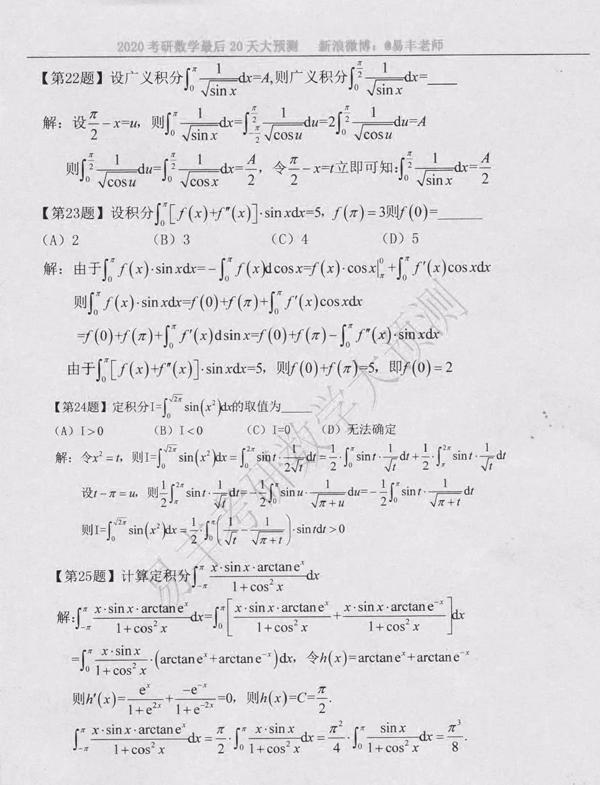 2020考研数学最后20天大预测 新浪微博：@易丰老师
【第22题】设广义积分∫₀^π 1/√(sin x) dx=A,则广义积分∫₀^(π/2) 1/√(sin x) dx=____
解：设π/2−x=u，则∫₀^π 1/√(sin x) dx=∫_(−π/2)^(π/2) 1/√(cos u) du=2∫₀^(π/2) 1/√(cos u) du=A
则∫₀^(π/2) 1/√(cos u) du=∫₀^(π/2) 1/√(cos x) dx=A/2，令π/2−x=t立即可知:∫₀^(π/2) 1/√(sin x) dx=A/2
【第23题】设积分∫₀^π [f(x)+f″(x)]·sin xdx=5，f(π)=3则f(0)=______
(A) 2 (B) 3 (C) 4 (D) 5
解：由于∫₀^π f(x)·sin xdx=−∫₀^π f(x)d cos x=f(x)·cos x|_π^0+∫₀^π f′(x)cos xdx
则∫₀^π f(x)·sin xdx=f(0)+f(π)+∫₀^π f′(x)cos xdx
=f(0)+f(π)+∫₀^π f′(x)d sin x=f(0)+f(π)−∫₀^π f″(x)·sin xdx
由于∫₀^π [f(x)+f″(x)]·sin xdx=5，则f(0)+f(π)=5，即f(0)=2
【第24题】定积分I=∫₀^√(2π) sin(x²)dx的取值为_____
(A) I>0 (B) I<0 (C) I=0 (D) 无法确定
解：令x²=t，则I=∫₀^√(2π) sin(x²)dx=∫₀^(2π) sin t·1/(2√t) dt=1/2·∫₀^π sin t·1/√t dt+1/2·∫_π^(2π) sin t·1/√t dt
设t−π=u，则1/2∫_π^(2π) sin t·1/√t dt=−1/2∫₀^π sin u·1/√(π+u) du=−1/2∫₀^π sin t·1/√(π+t) dt
则I=∫₀^√(2π) sin(x²)dx=1/2·∫₀^π (1/√t−1/√(π+t))·sin tdt>0
【第25题】计算定积分∫_(−π)^π x·sin x·arctan eˣ/(1+cos²x) dx
解:∫_(−π)^π x·sin x·arctan eˣ/(1+cos²x) dx=∫₀^π [x·sin x·arctan eˣ/(1+cos²x)+x·sin x·arctan e⁻ˣ/(1+cos²x)]dx
=∫₀^π x·sin x/(1+cos²x)·(arctan eˣ+arctan e⁻ˣ)dx，令h(x)=arctan eˣ+arctan e⁻ˣ
则h′(x)=eˣ/(1+e²ˣ)+−e⁻ˣ/(1+e⁻²ˣ)=0，则h(x)=C=π/2.
∫_(−π)^π x·sin x·arctan eˣ/(1+cos²x) dx=π/2·∫₀^π x·sin x/(1+cos²x) dx=π²/4·∫₀^π sin x/(1+cos²x) dx=π³/8.
易丰考研数学大预测